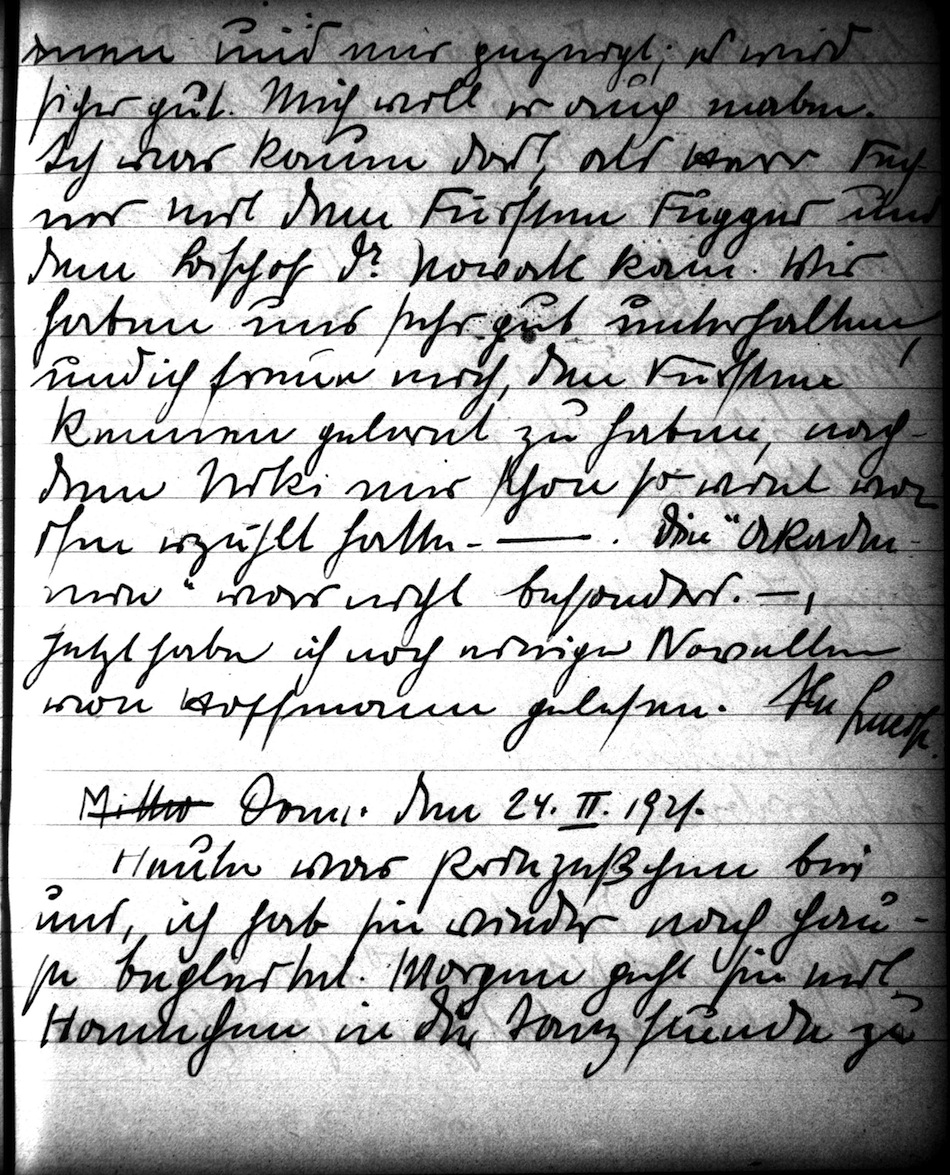 men und mir gezeigt; es wird
sicher gut. Mich will er auch malen.
Ich war kaum dort, als Herr
ner mit dem Fürsten Fugger und
dem Bischof Dr. Nowak kam. Wir
haben uns sehr gut unterhalten,
und ich freue mich, den Fürsten
kennen gelernt zu haben, nach-
dem Niki mir schon so viel von
ihm erzählt hatte. — . Die "Akade-
mie" war nicht besonders. —,
Jetzt habe ich noch einige Novellen
von Hoffmann gelesen.
Mittw Donn. den 24. II. 1921.
Heute war Prinzeßchen bei
uns, ich hab sie wieder nach Hau-
se begleitet. Morgen geht sie mit
Hannchen in die Tanzstunde zu